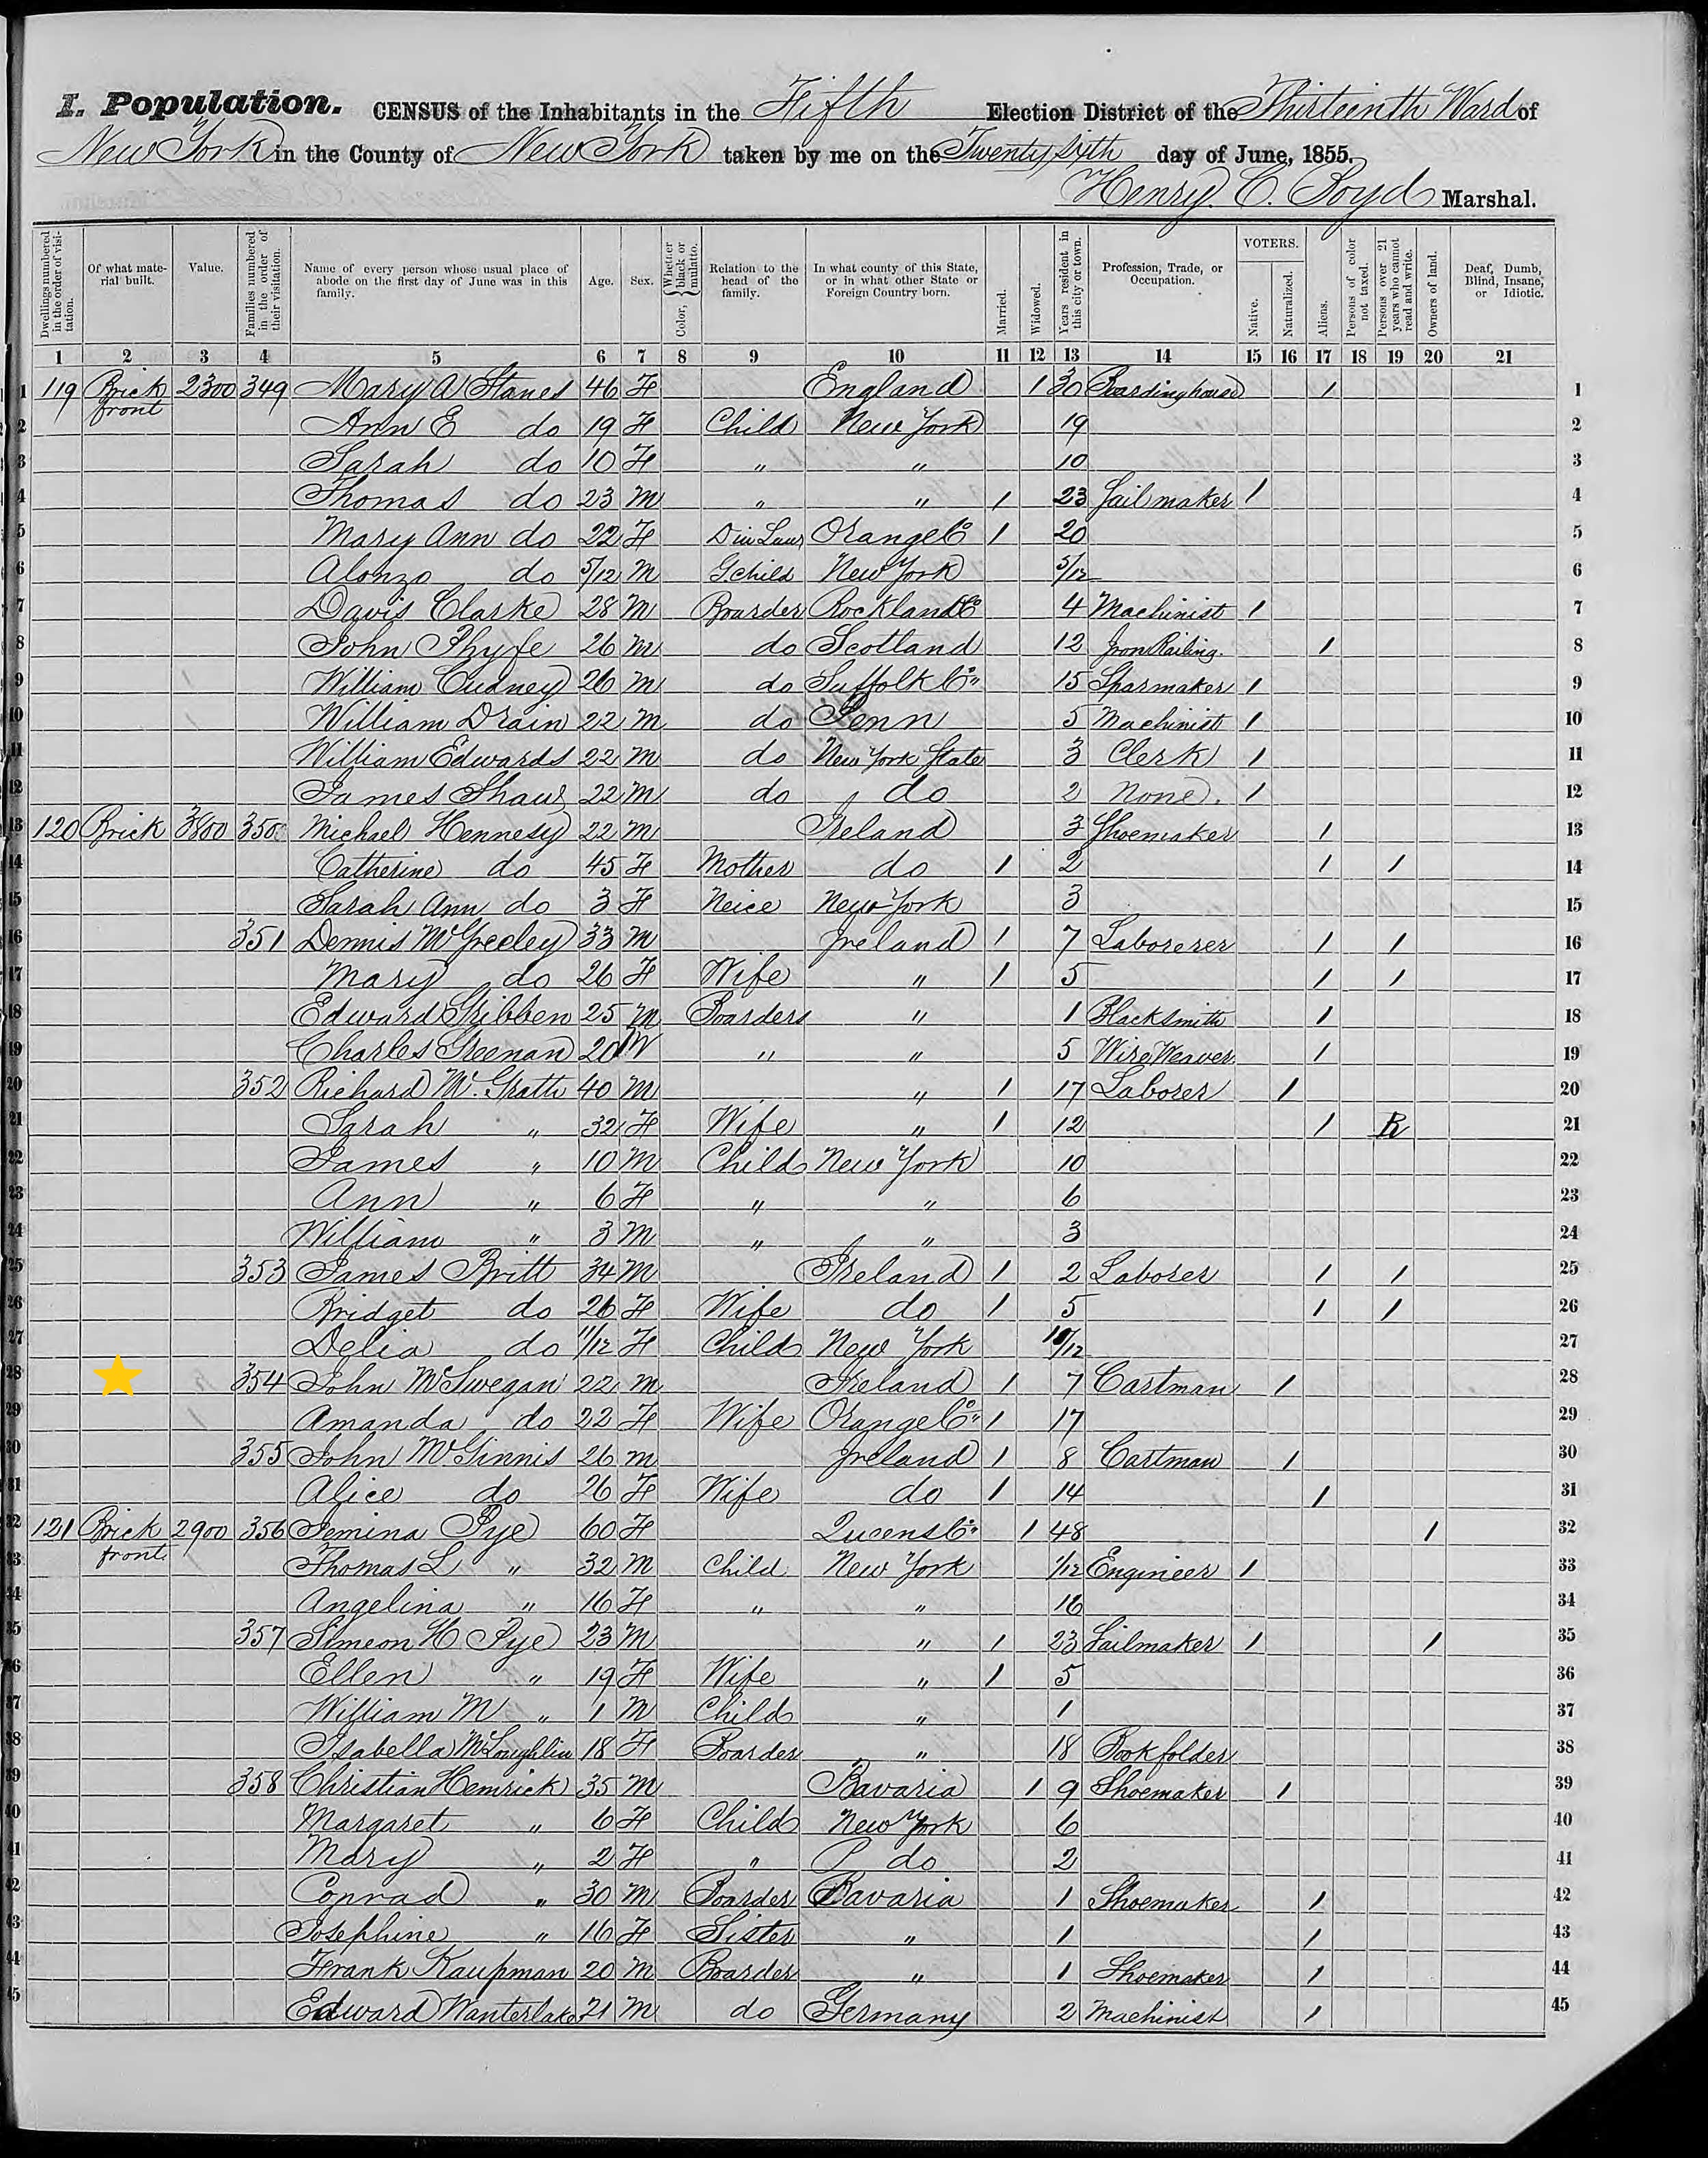 I. Population. CENSUS of the Inhabitants in the Fifth Election District of the Thirteenth Ward of
New York in the County of New York taken by me on the Twenty sixth day of June, 1855.
Henry C. Boyd Marshal.
Dwellings numbered in the order of visitation. Of what material built. Value. Families numbered in the order of their visitation. Name of every person whose usual place of abode on the first day of June was in this family. Age. Sex. Color, Whether black or mulatto. Relation to the head of the family. In what county of this State, or in what other State or Foreign Country born. Married. Widowed. Years resident in this city or town. Profession, Trade, or Occupation. VOTERS. Native. Naturalized. Aliens. Persons of color not taxed. Persons over 21 years who cannot read and write. Owners of land. Deaf, Dumb, Blind, Insane, or Idiotic.
1 2 3 4 5 6 7 8 9 10 11 12 13 14 15 16 17 18 19 20 21
1 119 Brick front 2300 349 Mary A Stanes 46 F England 1 30 Boardinghouse 1 1
2 Ann E do 19 F Child New York 19 2
3 Sarah do 10 F " " 10 3
4 Thomas do 23 M " " 1 23 Sailmaker 1 4
5 Mary Ann do 22 F D in Law Orange Co 1 20 5
6 Alonzo do 5/12 M G child New York 5/12 6
7 Davis Clarke 28 M Boarder Rockland Co 4 Machinist 1 7
8 John Phyfe 26 M do Scotland 12 Iron Railing. 1 8
9 William Cudney 26 M do Suffolk Co 15 Sparmaker 1 9
10 William Drain 22 M do Penn 5 Machinist 1 10
11 William Edwards 22 M do New York State 3 Clerk 1 11
12 James Shaw 22 M do do 2 None. 1 12
13 120 Brick 350 Michael Hennesy 22 M Ireland 3 Shoemaker 1 13
14 Catherine do 45 F Mother do 1 2 1 1 14
15 Sarah Ann do 3 F Neice New York 3 15
16 351 Dennis McGreeley 33 M Ireland 1 7 Laborerer 1 1 16
17 Mary do 26 F Wife " 1 5 1 1 17
18 Edward Gribben 25 M Boarders " 1 Blacksmith 1 18
19 Charles Greenan 20 M " " 5 Wire Weaver. 1 19
20 352 Richard Mc Grath 40 M " 1 17 Laborer 1 20
21 Sarah " 32 F Wife " 1 12 1 R 21
22 James " 10 M Child New York 10 22
23 Ann " 6 F " " 6 23
24 William " 3 M " " 3 24
25 353 James Britt 34 M Ireland 1 2 Laborer 1 1 25
26 Bridget do 26 F Wife do 1 5 1 1 26
27 Delia do 11/12 F Child New York 27
28 354 John McSwegan 22 M Ireland 1 7 Cartman 1 28
29 Amanda do 22 F Wife Orange Co 1 17 29
30 355 John McGinnis 26 M Ireland 1 8 Cartman 1 30
31 Alice do 26 F Wife do 1 14 1 31
32 121 Brick front 2900 356 Jemina Pye 60 F Queens Co 1 48 1 32
33 Thomas L " 32 M Child New York 1/12 Engineer 1 33
34 Angelina " 16 F " " 16 34
35 357 Simeon H Pye 23 M " 1 23 Sailmaker 1 1 35
36 Ellen " 19 F Wife " 1 5 36
37 William M " 1 M Child " 1 37
38 Isabella McLoughlin 18 F Boarder " 18 Bookfolder 38
39 358 Christian Hemrick 35 M Bavaria 1 9 Shoemaker 1 39
40 Margaret " 6 F Child New York 6 40
41 Mary " 2 F " do 2 41
42 Conrad " 30 M Boarder Bavaria 1 Shoemaker 1 42
43 Josephine " 16 F Sister " 1 1 43
44 Frank Kaupman 20 M Boarder " 1 Shoemaker 1 44
45 Edward Wanterlake 21 M do Germany 2 Machinist 1 45